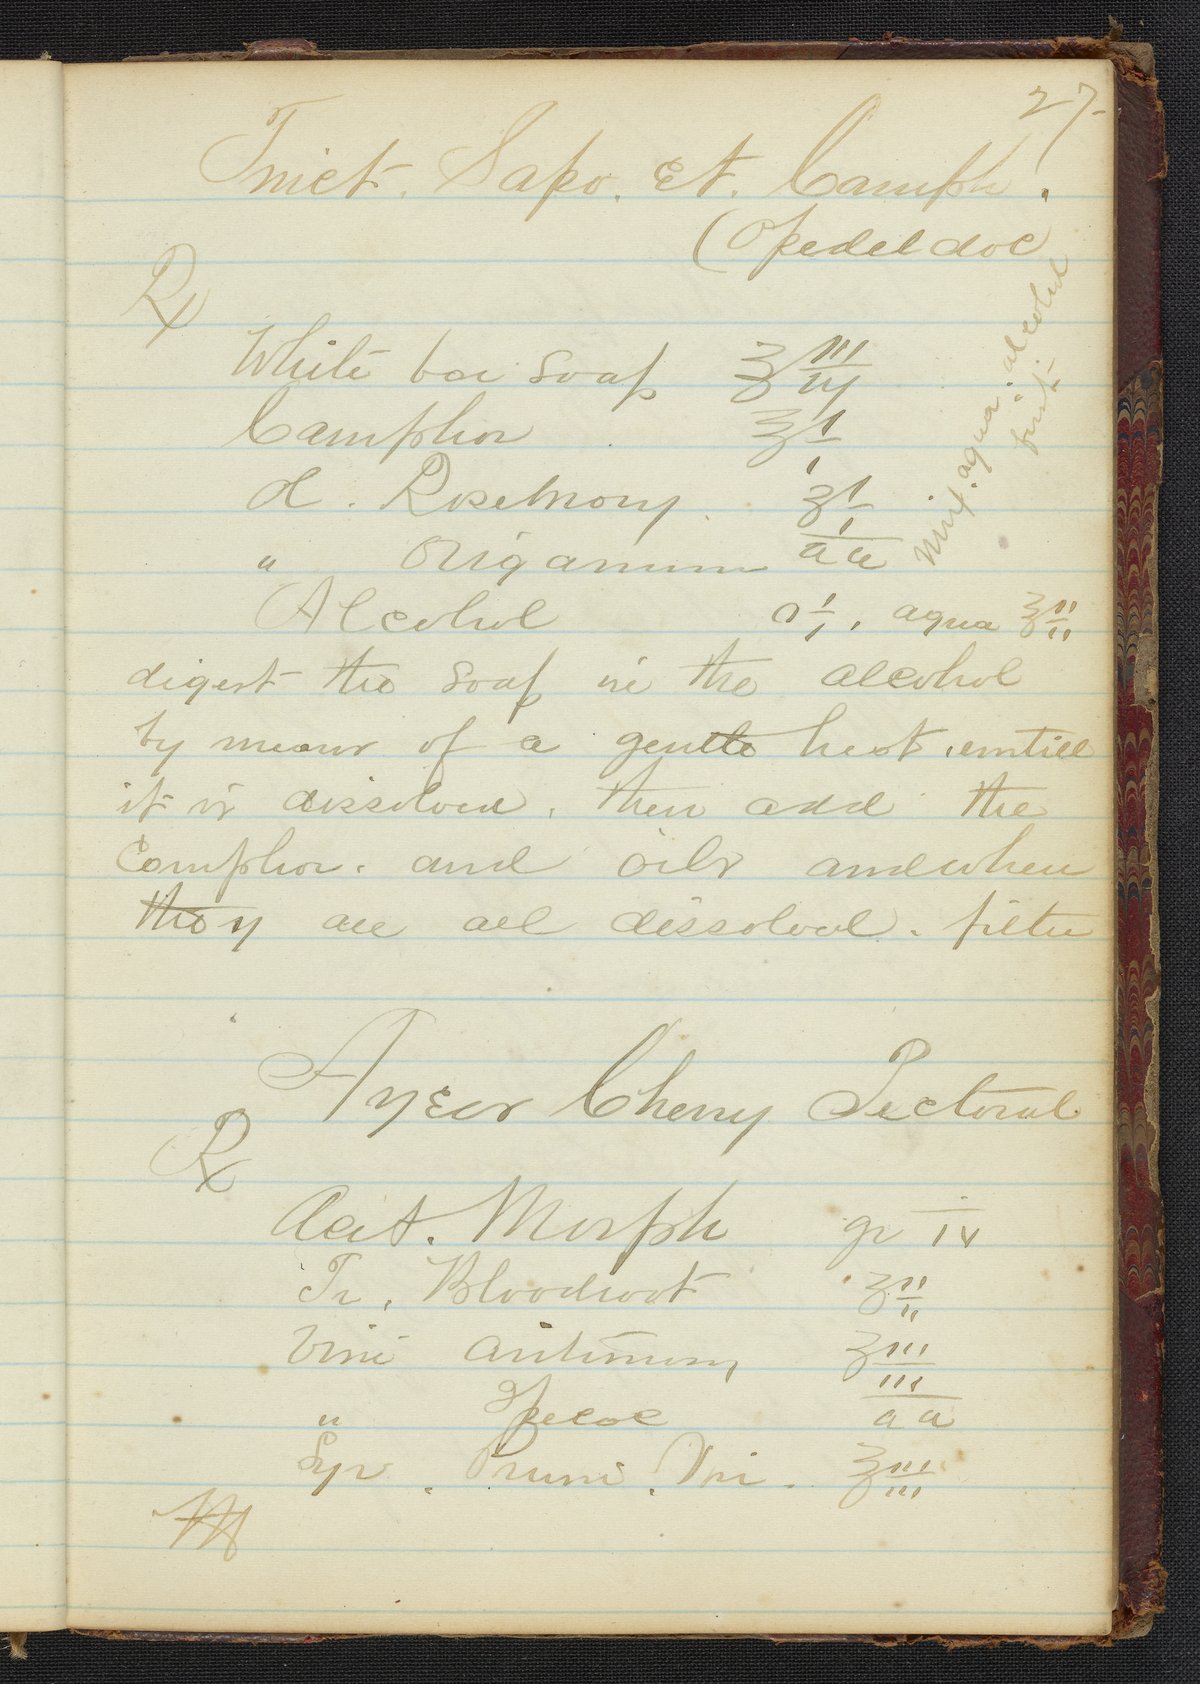 27-
Tinct. Sapo. Et. Camph.
(Opedeldoc
℞
White bar soap ℥ iii
Camphor ℥ i
Ol. Rosemary ʒ i
" Origanum aa
Alcohol O i, aqua ℥ ii
Mix. aqua. alcohol
first
digest the soap in the alcohol
by means of a gentle heat, emtill
it is dissolved, then add the
Camphor. and oils andwhen
they are all dissolved. filter
Ayeor Cherry Pectoral
℞
Acet. Morph gr iv
Tr. Bloodroot ʒ ii
Vini Antimony ʒ iii
" Ipecac aa
Syr. Pruni. Vir. ℥ iii
M